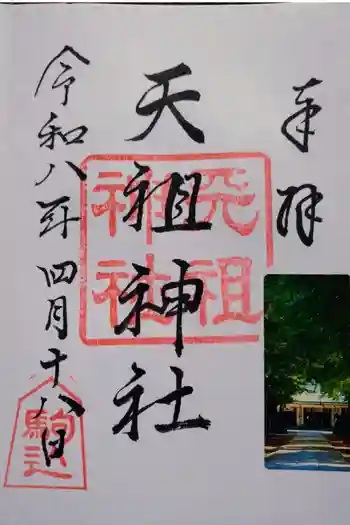 奉拝
天祖神社
天祖神社
令和八年四月十八日
駒込